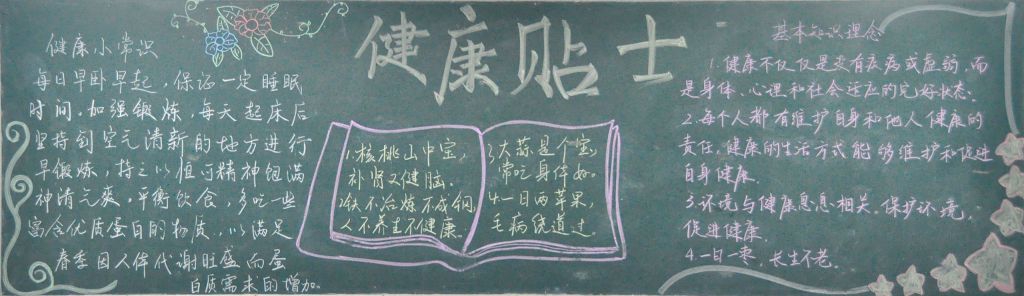 健康贴士
健康小常识
每日早卧早起，保证一定睡眠
时间，加强锻炼，每天起床后
坚持到空气清新的地方进行
早锻炼，持之以恒过精神饱满
神清气爽，平衡饮食，多吃一些
富含优质蛋白的物质，以满足
春季因人体代谢旺盛而蛋
白质需求的增加。
1.核桃山中宝，
补肾又健脑。
2.铁不冶炼不成钢，
人不养生不健康。
3.大蒜是个宝，
常吃身体好。
4.一日两苹果，
毛病绕道过。
基本知识理念
1.健康不仅仅是没有疾病或虚弱，而
是身体、心理和社会适应的完好状态。
2.每个人都有维护自身和他人健康的
责任，健康的生活方式能够维护和促进
自身健康。
3.环境与健康息息相关，保护环境，
促进健康。
4.一日一枣，长生不老。